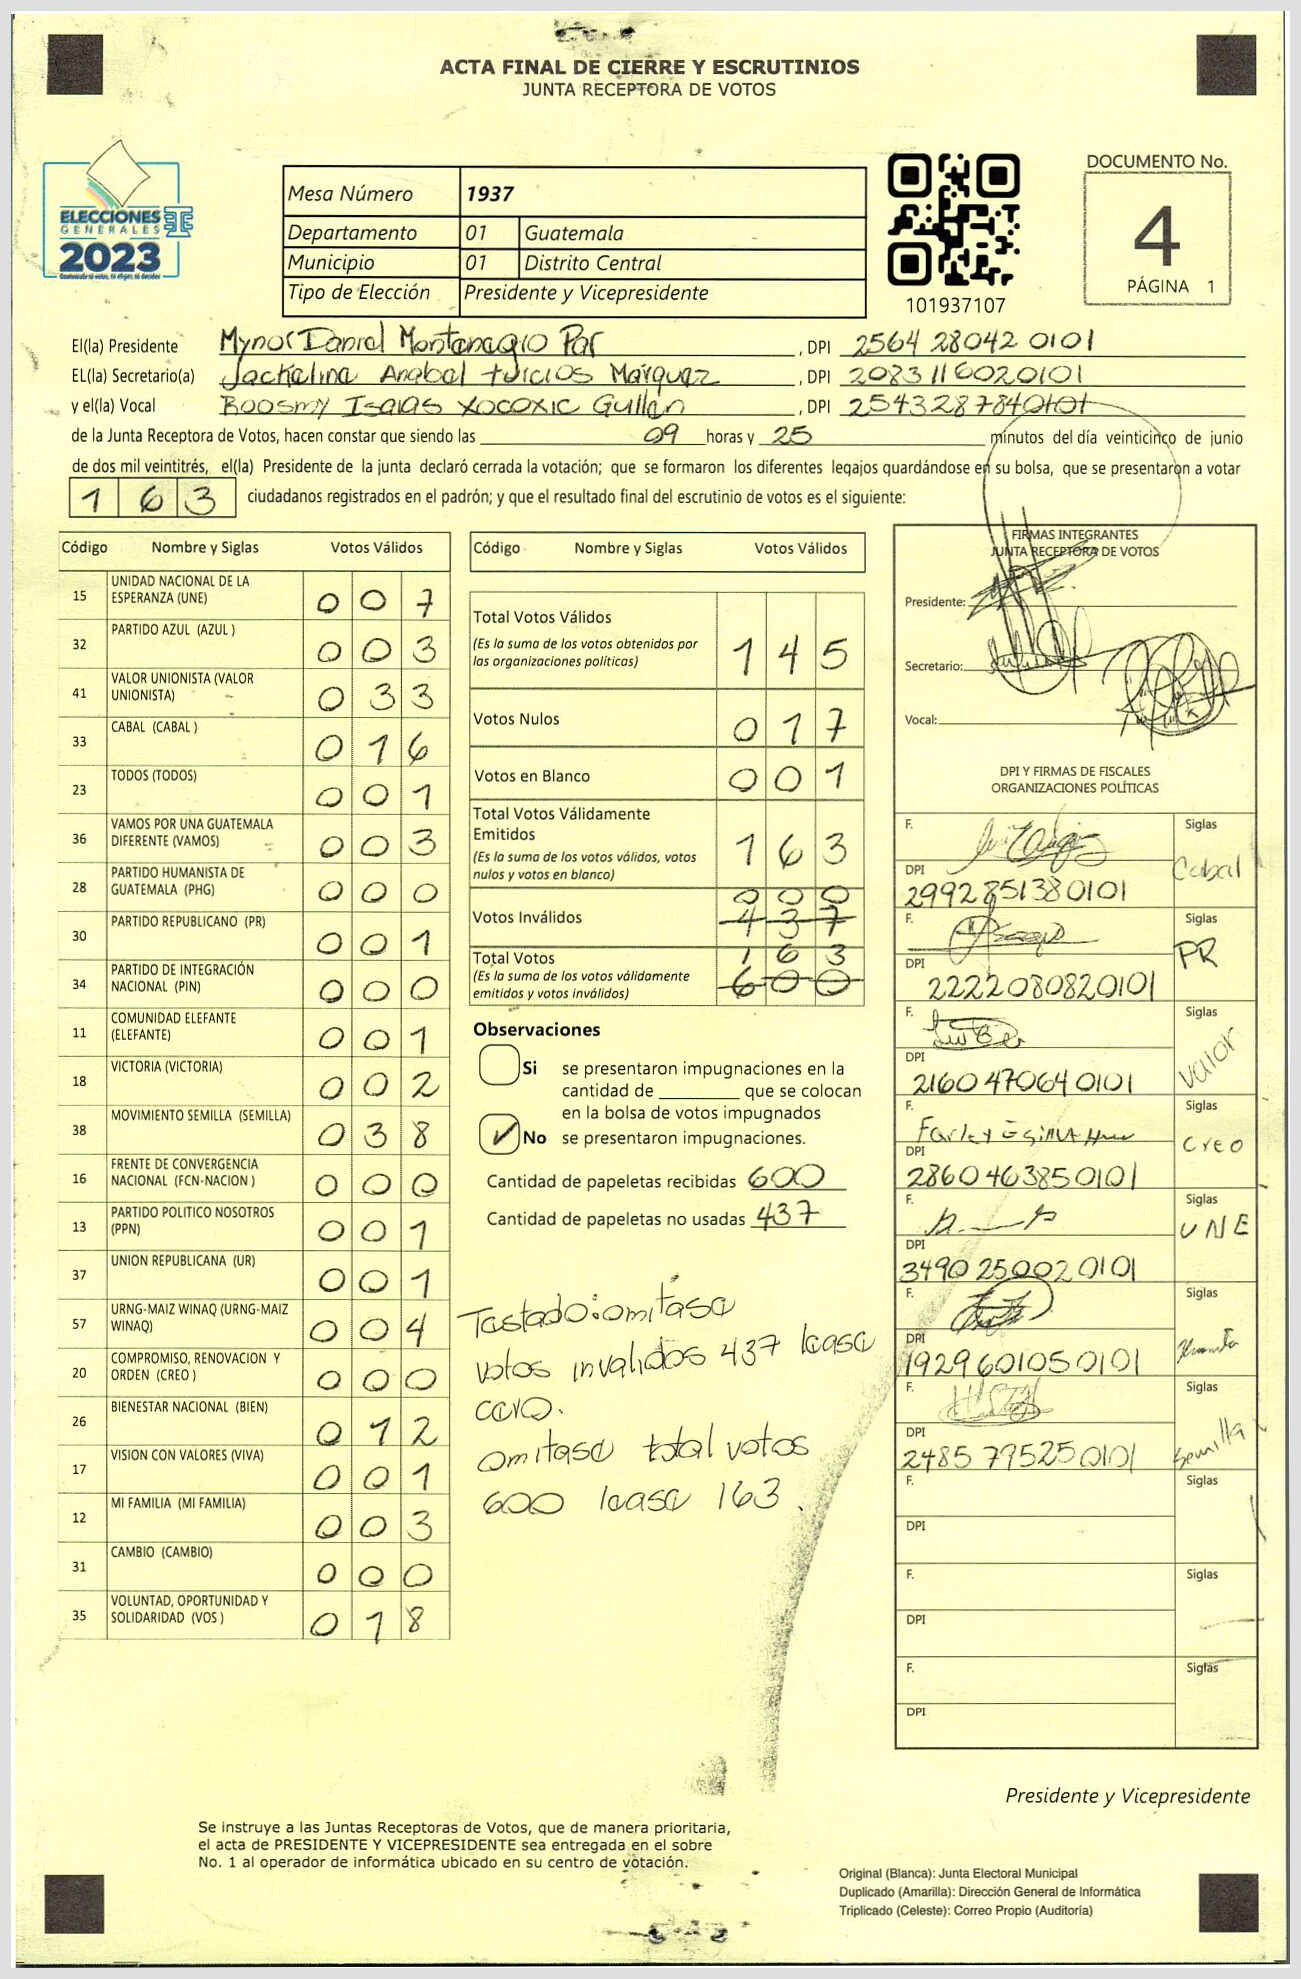 ACTA FINAL DE CIERRE Y ESCRUTINIOS
JUNTA RECEPTORA DE VOTOS
ELECCIONES
GENERALES
2023
Mesa Número 1937
Departamento 01 Guatemala
Municipio 01 Distrito Central
Tipo de Elección Presidente y Vicepresidente
101937107
DOCUMENTO No.
4
PÁGINA 1
El(la) Presidente Mynor Daniel Montenegro Par, DPI 2564 28042 0101
EL(la) Secretario(a) Jackelina Anabel turcios Marquez, DPI 2083116020101
y el(la) Vocal Roosmy Isaias Xocoxic Guillen, DPI 2543287840101
de la Junta Receptora de Votos, hacen constar que siendo las 09 horas y 25 minutos del día veinticinco de junio
de dos mil veintitrés, el(la) Presidente de la junta declaró cerrada la votación; que se formaron los diferentes legajos guardándose en su bolsa, que se presentaron a votar
163 ciudadanos registrados en el padrón; y que el resultado final del escrutinio de votos es el siguiente:
Código Nombre y Siglas Votos Válidos
15 UNIDAD NACIONAL DE LA
ESPERANZA (UNE) 007
32 PARTIDO AZUL (AZUL ) 003
41 VALOR UNIONISTA (VALOR
UNIONISTA) 033
33 CABAL (CABAL ) 016
23 TODOS (TODOS) 001
36 VAMOS POR UNA GUATEMALA
DIFERENTE (VAMOS) 003
28 PARTIDO HUMANISTA DE
GUATEMALA (PHG) 000
30 PARTIDO REPUBLICANO (PR) 001
34 PARTIDO DE INTEGRACIÓN
NACIONAL (PIN) 000
11 COMUNIDAD ELEFANTE
(ELEFANTE) 001
18 VICTORIA (VICTORIA) 002
38 MOVIMIENTO SEMILLA (SEMILLA) 038
16 FRENTE DE CONVERGENCIA
NACIONAL (FCN-NACION ) 000
13 PARTIDO POLITICO NOSOTROS
(PPN) 001
37 UNION REPUBLICANA (UR) 001
57 URNG-MAIZ WINAQ (URNG-MAIZ
WINAQ) 004
20 COMPROMISO, RENOVACION Y
ORDEN (CREO ) 000
26 BIENESTAR NACIONAL (BIEN) 012
17 VISION CON VALORES (VIVA) 001
12 MI FAMILIA (MI FAMILIA) 003
31 CAMBIO (CAMBIO) 000
35 VOLUNTAD, OPORTUNIDAD Y
SOLIDARIDAD (VOS ) 018
Código Nombre y Siglas Votos Válidos
Total Votos Válidos
(Es la suma de los votos obtenidos por
las organizaciones políticas) 145
Votos Nulos 017
Votos en Blanco 001
Total Votos Válidamente
Emitidos
(Es la suma de los votos válidos, votos
nulos y votos en blanco) 163
000
Votos Inválidos 437
Total Votos 163
(Es la suma de los votos válidamente
emitidos y votos inválidos) 600
Observaciones
Si se presentaron impugnaciones en la
cantidad de ________ que se colocan
en la bolsa de votos impugnados
No se presentaron impugnaciones.
Cantidad de papeletas recibidas 600
Cantidad de papeletas no usadas 437
Tastado: omitasa
votos invalidos 437 leasa
cero.
omitasa total votos
600 leasa 163.
FIRMAS INTEGRANTES
JUNTA RECEPTORA DE VOTOS
Presidente:
Secretario:
Vocal:
DPI Y FIRMAS DE FISCALES
ORGANIZACIONES POLÍTICAS
F. Siglas
Cabal
DPI
2992851380101
F. Siglas
PR
DPI
2222080820101
F. Siglas
Valor
DPI
2160470640101
F. Siglas
Creo
DPI
2860463850101
F. Siglas
UNE
DPI
3490250020101
F. Siglas
DPI
1929601050101
F. Siglas
Semilla
DPI
2485795250101
F. Siglas
DPI
F. Siglas
DPI
F. Siglas
DPI
Presidente y Vicepresidente
Se instruye a las Juntas Receptoras de Votos, que de manera prioritaria,
el acta de PRESIDENTE Y VICEPRESIDENTE sea entregada en el sobre
No. 1 al operador de informática ubicado en su centro de votación.
Original (Blanca): Junta Electoral Municipal
Duplicado (Amarilla): Dirección General de Informática
Triplicado (Celeste): Correo Propio (Auditoría)